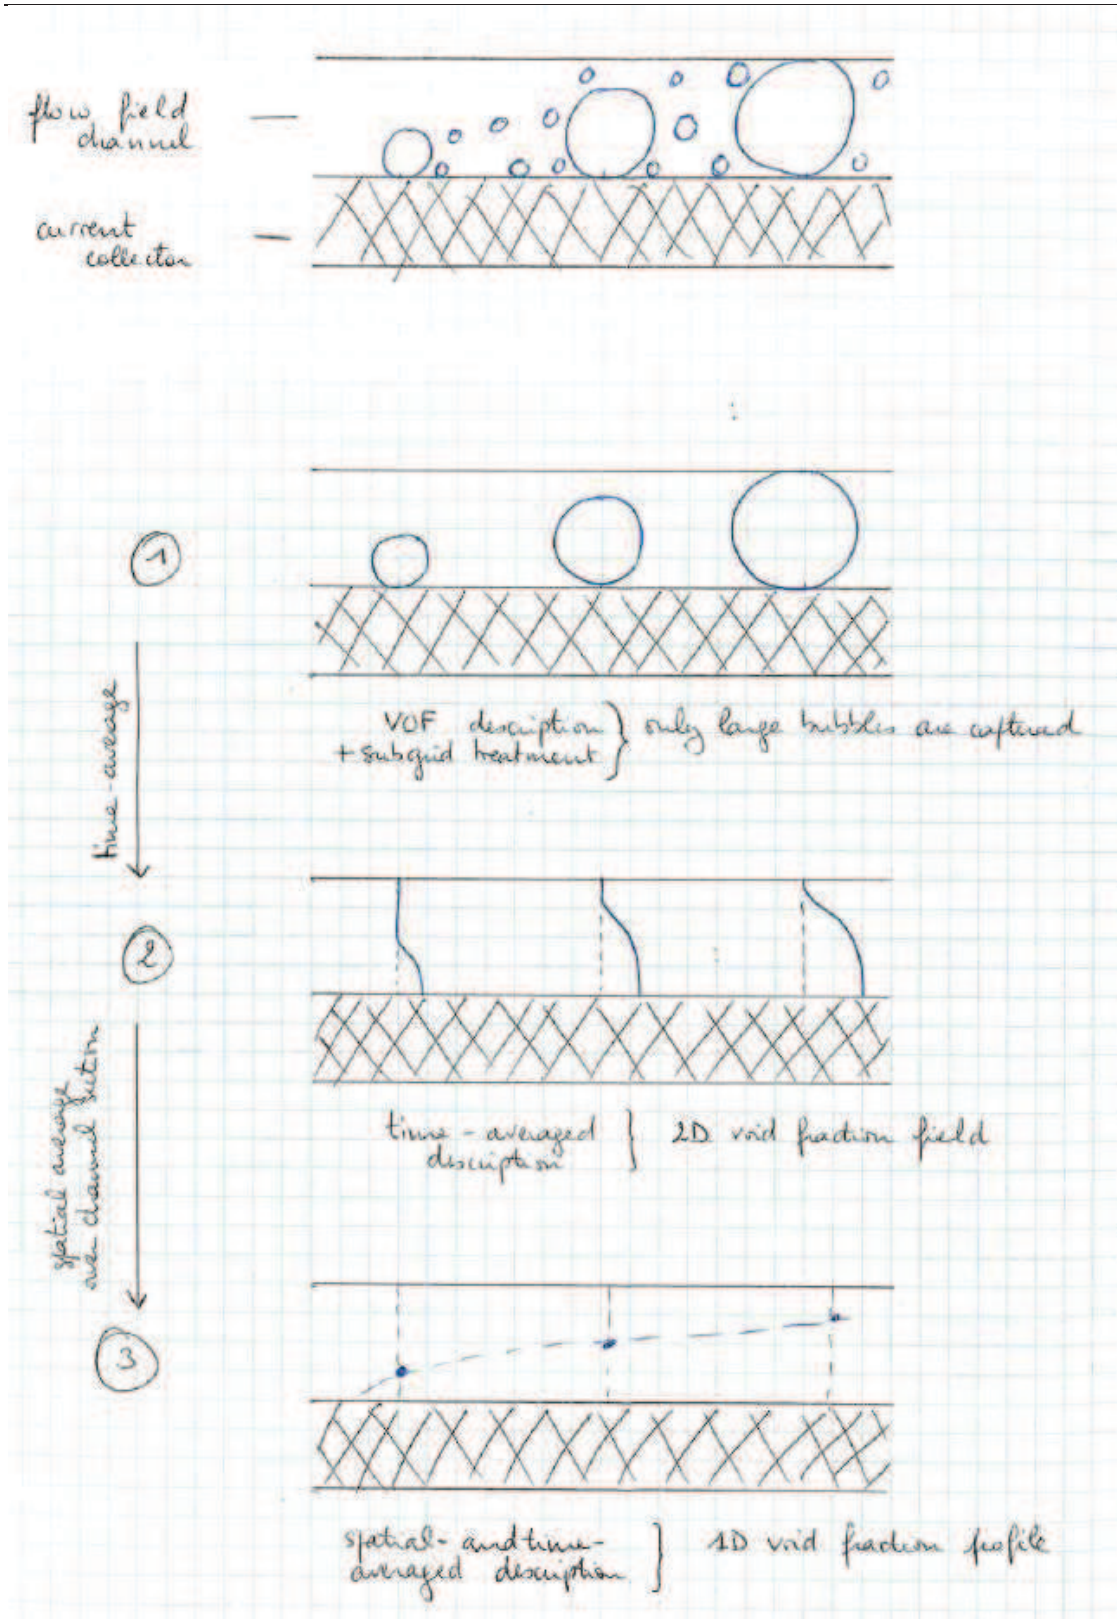 flow field
channel
current
collector
1
VOF description
+ subgrid treatment
} only large bubbles are captured
time-average
2
time-averaged
description
} 2D void fraction field
spatial average
over channel section
3
spatial- and time-
averaged description
} 1D void fraction profile